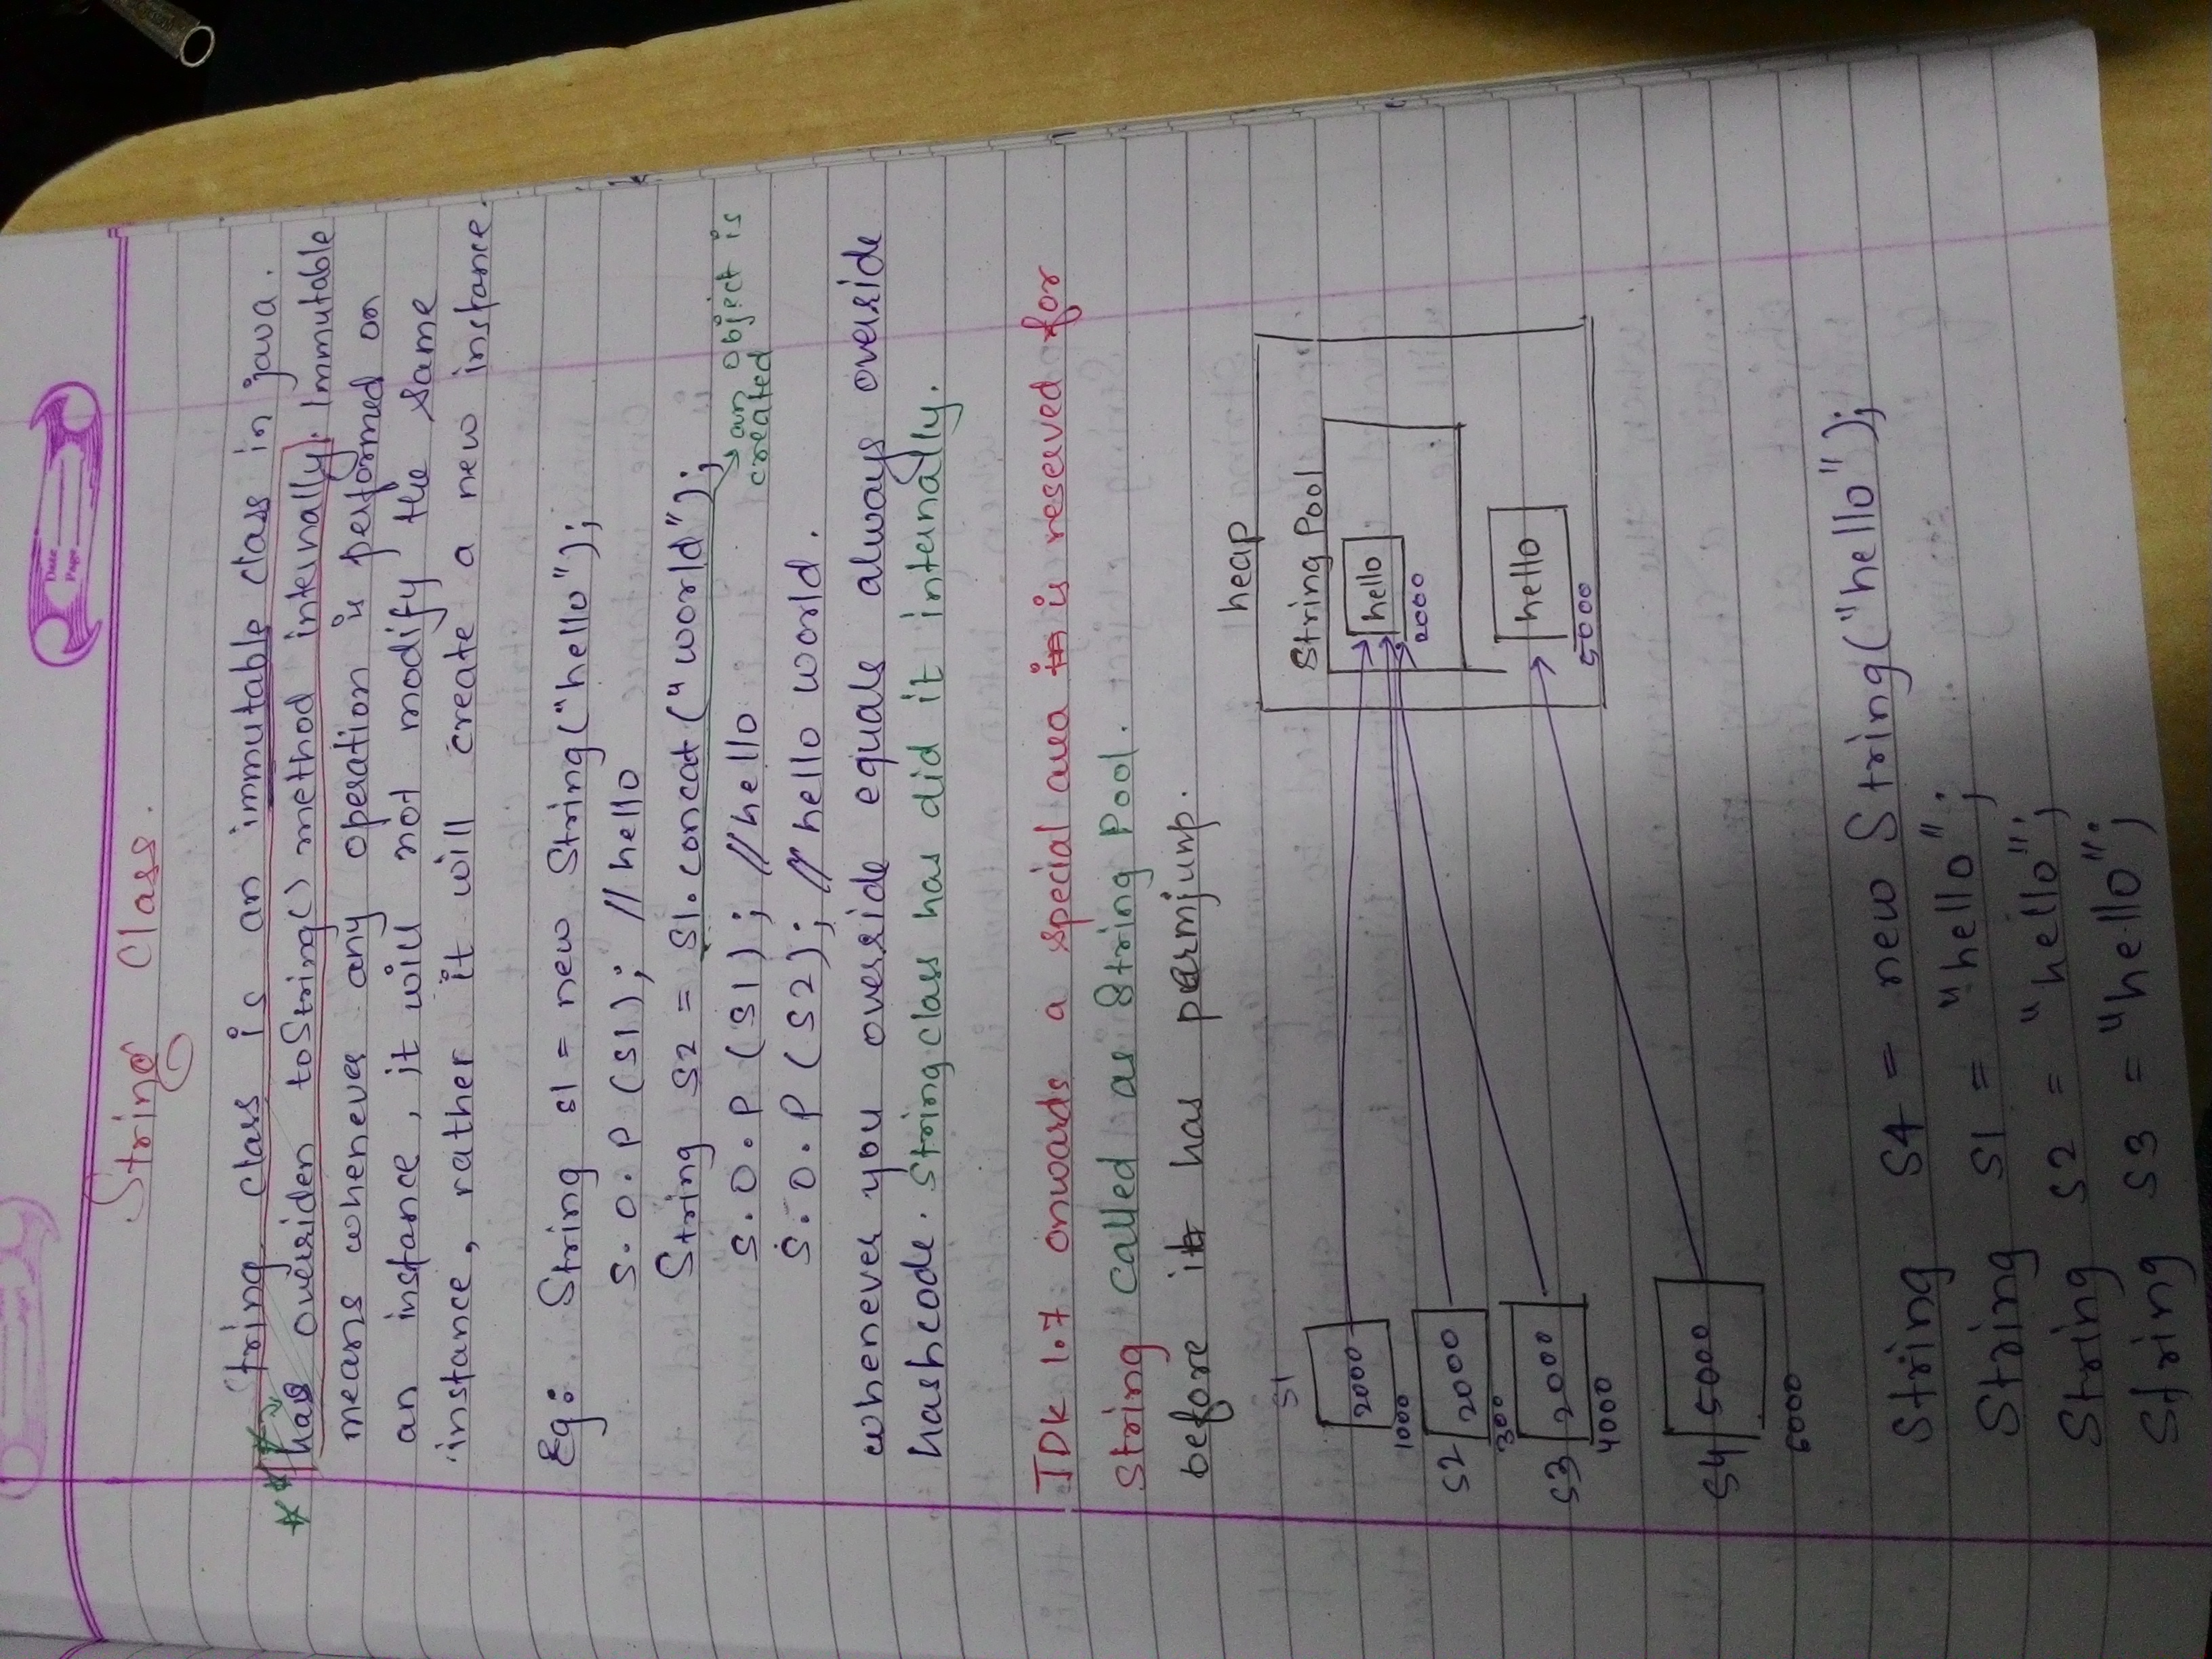 Date
Page
String Class.
String class is an immutable class in java.
has overriden toString() method internally. Immutable
means whenever any operation is performed on
an instance, it will not modify the same
instance, rather it will create a new instance.
Eg: String s1 = new String("hello");
S.O.P (S1); //hello
String S2 = S1.concat("world");
→ an object is
created
S.O.P (S1); //hello
S.O.P (S2); //hello world.
whenever you override equals always override
hashcode. String class has did it internally.
JDK 1.7 onwards a special area is reserved for
string called as String Pool.
before it has permjump.
heap
S1
String Pool
2000
hello
1000
2000
S2 2000
300
hello
S3 2000
5000
4000
S4 5000
6000
String S4 = new String("hello");
String S1 = "hello";
String S2 = "hello";
String S3 = "hello";